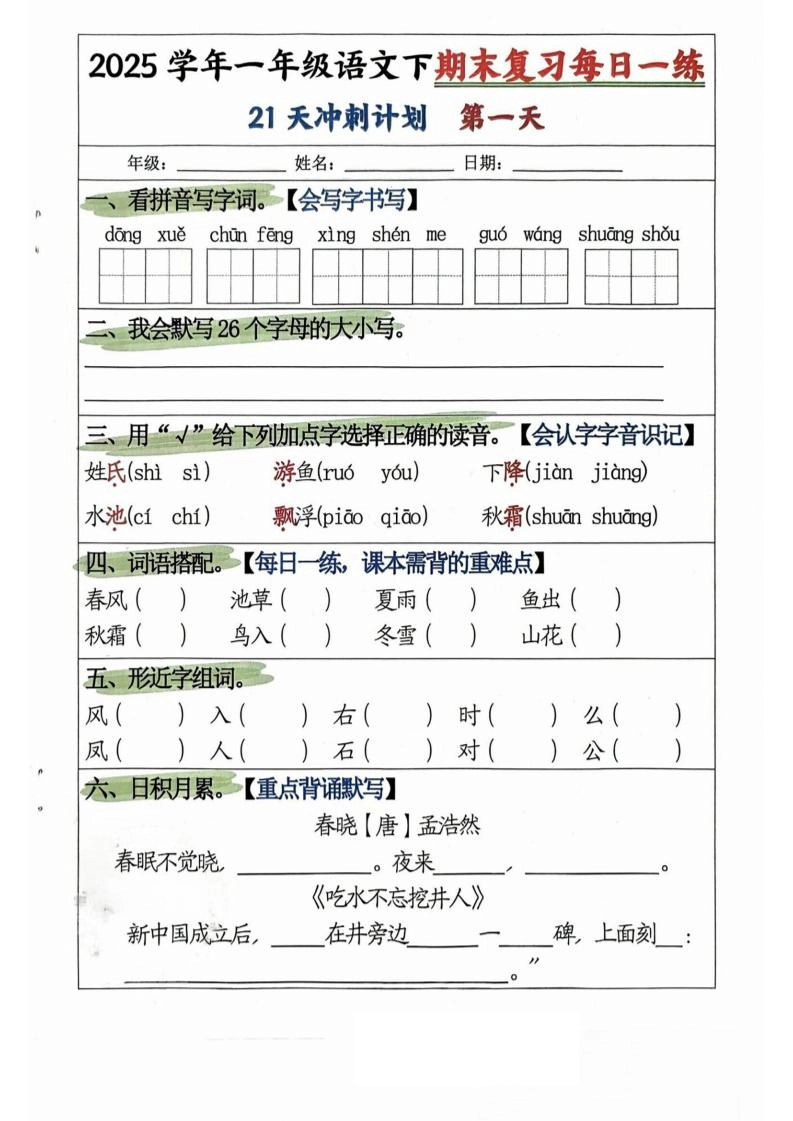 2025 学年一年级语文下期末复习每日一练
21 天冲刺计划 第一天
年级：__________ 姓名：__________ 日期：__________
一、看拼音写字词。【会写字书写】
dōng xuě chūn fēng xìng shén me guó wáng shuāng shǒu
二、我会默写26个字母的大小写。
三、用“√”给下列加点字选择正确的读音。【会认字字音识记】
姓氏(shì sì) 游鱼(ruó yóu) 下降(jiàn jiàng)
水池(cí chí) 飘浮(piāo qiāo) 秋霜(shuān shuāng)
四、词语搭配。【每日一练，课本需背的重难点】
春风（ ） 池草（ ） 夏雨（ ） 鱼出（ ）
秋霜（ ） 鸟入（ ） 冬雪（ ） 山花（ ）
五、形近字组词。
风（ ） 入（ ） 右（ ） 时（ ） 么（ ）
凤（ ） 人（ ） 石（ ） 对（ ） 公（ ）
六、日积月累。【重点背诵默写】
春晓【唐】孟浩然
春眠不觉晓，__________。夜来______，__________。
《吃水不忘挖井人》
新中国成立后，_____在井旁边______一_____碑，上面刻__：
______________________________。”